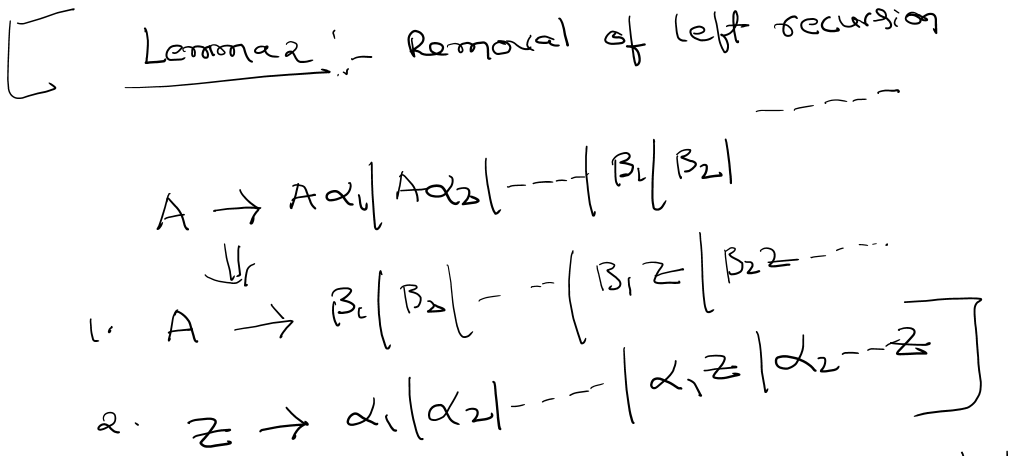 Lemma 2 :- Removal of left recursion
-----
A → Aα₁ | Aα₂ | ---- | β₁ | β₂ |
⇓
1. A → β₁ | β₂ | - -- | β₁ Z | β₂ Z -----
2. Z → α₁ | α₂ | ---- | α₁ Z | α₂ --- Z